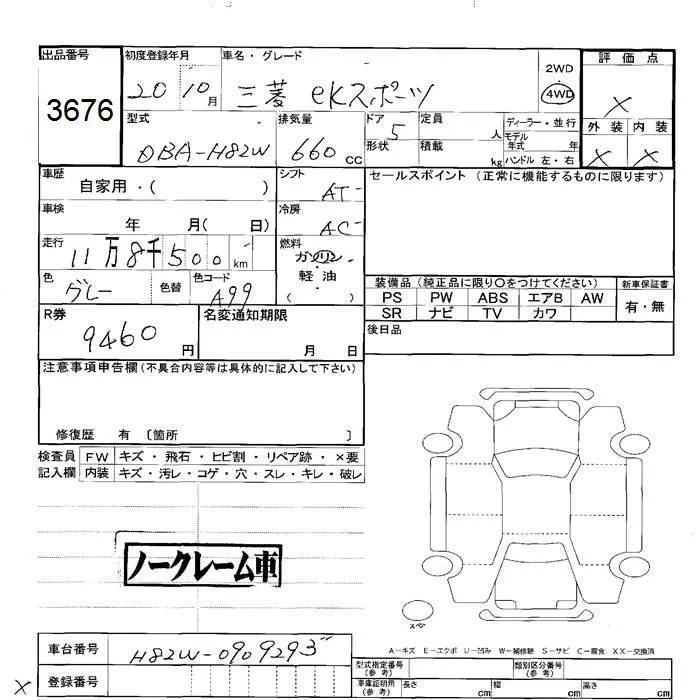 出品番号 初度登録年月 車名・グレード 評価点
3676 20 10月 三菱 ekスポーツ 2WD 4WD X
型式 排気量 ドア 定員 ディーラー・並行 外装 内装
DBA-H82W 660cc 5 形状 積載 人 kg モデル年式 年 ハンドル 左・右 X X
車歴 シフト セールスポイント (正常に機能するものに限ります)
自家用・( ) AT
車検 冷房
年 月( 日) AC
走行 燃料
11万8千500km ガソリン
色 色替 色コード 軽油
グレー A99 ( )
装備品 (純正品に限り〇をつけてください) 新車保証書
PS PW ABS エアB AW 有・無
SR ナビ TV カワ
R券 名変通知期限 後日品
9460円 月 日
注意事項申告欄(不具合内容等は具体的に記入して下さい)
修復歴 有 〔箇所 〕
検査員 FW キズ・飛石・ヒビ割・リペア跡・×要
記入欄 内装 キズ・汚レ・コゲ・穴・スレ・キレ・破レ
ノークレーム車
スペア
A-キズ E-エクボ U-凹み W-補修跡 S-サビ C-腐食 XX-交換済
車台番号 H82W-0909293
型式指定番号(参考) 類別区分番号(参考)
X 登録番号
車庫証明用(参考) 長さ cm 幅 cm 高さ cm